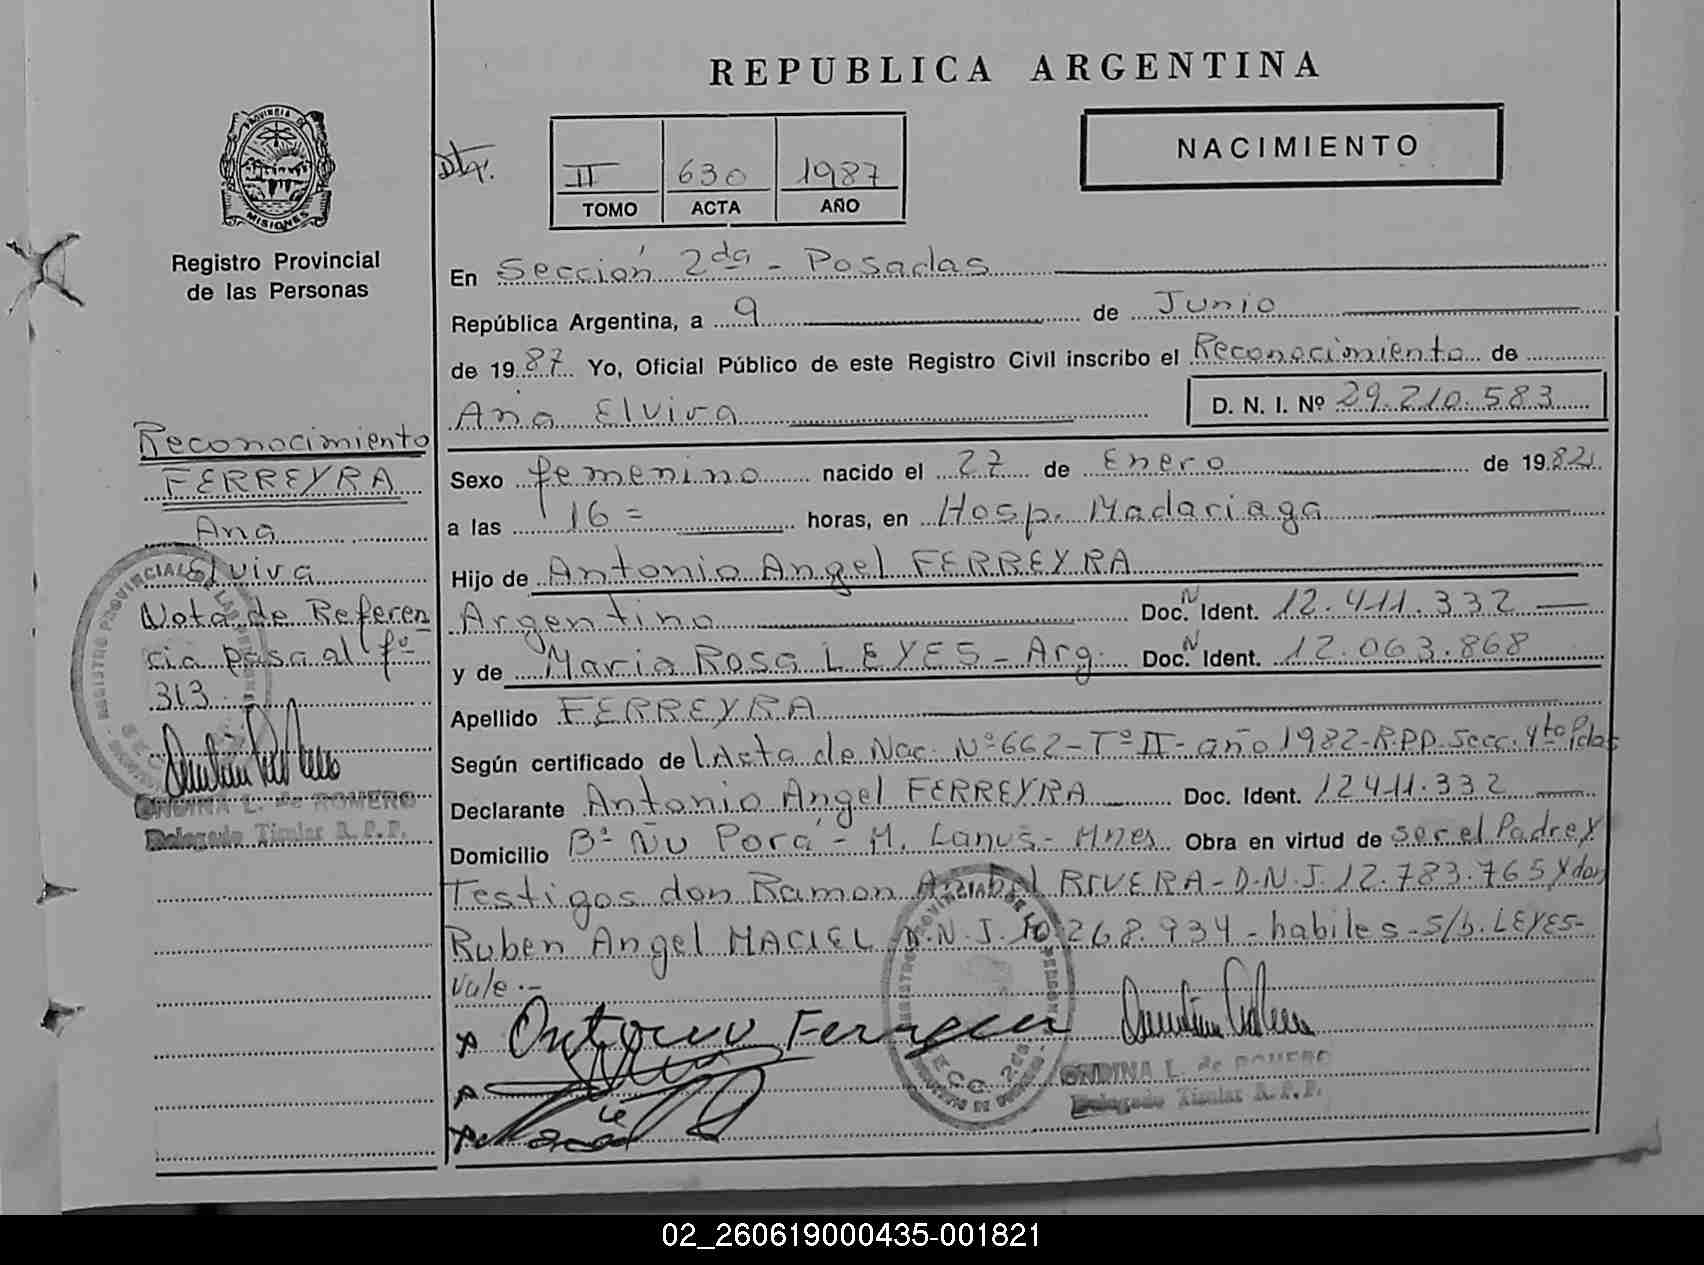 REPUBLICA ARGENTINA
PROVINCIA DE MISIONES
Registro Provincial
de las Personas
II 630 1987
TOMO ACTA AÑO
NACIMIENTO
En Sección 2da - Posadas
República Argentina, a 9 de Junio
de 1987 Yo, Oficial Público de este Registro Civil inscribo el Reconocimiento de
Ana Elvira D. N. I. Nº 29.210.583
Sexo femenino nacido el 27 de Enero de 1982
a las 16 = horas, en Hosp. Madariaga
Hijo de Antonio Angel FERREYRA
Argentino Doc. N Ident. 12.411.332
y de Maria Rosa LEYES - Arg. Doc. N Ident. 12.063.868
Apellido FERREYRA
Según certificado de Acta de Nac. Nº 662 - Tº II - año 1982 - R.P.P. Secc. 4to Pdas
Declarante Antonio Angel FERREYRA Doc. Ident. 12411.332
Domicilio Bº Ñu Porá - M. Lanus - Mnes Obra en virtud de ser el Padre y
Testigos don Ramon Anibal RIVERA - D.N.I. 12.783.765 y don
Ruben Angel MACIEL D.N.I. 10.268.934 - habiles - s/b. LEYES -
Vale. -
Antonio Ferreyra
ONDINA L. de ROMERO
Delegado Titular R.P.P.
Reconocimiento
FERREYRA
Ana
Elvira
Nota de Referen
cia pasa al fº
313
ONDINA L. de ROMERO
Delegado Titular R.P.P.
02_260619000435-001821